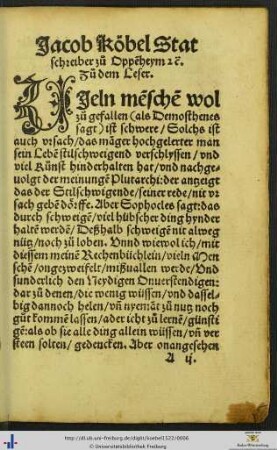 Jacob Köbel Stat
schreiber zů Oppēheym ꝛc̄.
Zů dem Leser.
VJeln mēschē wol
zů gefallen (als Demosthenes
sagt) ist schwere / Solchs ist
auch vrsach / das mäger hochgelerter man
sein Lebē stilschweigend verschlyssen / vnd
viel Künst hinderhalten hat / vnd nachge-
uolgt der meinungē Plutarchi: der anzeigt
das der Stilschwigende / seiner rede / nit vr
sach gebē dörffe. Aber Sophocles sagt: das
durch schweigē / viel hübscher ding hynder
halte werdē / Deßhalb schweigē nit alweg
nütz / noch zů loben. Vnnd wiewol ich / mit
diessem meinē Rechenbüchlein / vieln Men
schē / ongezweifelt / mißuallen werde / Vnd
sunderlich den Neydigen Onuerstendigen:
dar zů denen / die wenig wüssen / vnd dassel-
big dannoch helen / vn̄ nyemāt zů nutz noch
gůt kommē lassen / ader icht zů lernē / günsti
gē: als ob sie alle ding allein wüssen / vn̄ ver
steen solten / gedencken. Aber onangesehen
A ij.
http://dl.ub.uni-freiburg.de/diglit/koebel1522/0006
© Universitätsbibliothek Freiburg
Baden-Württemberg